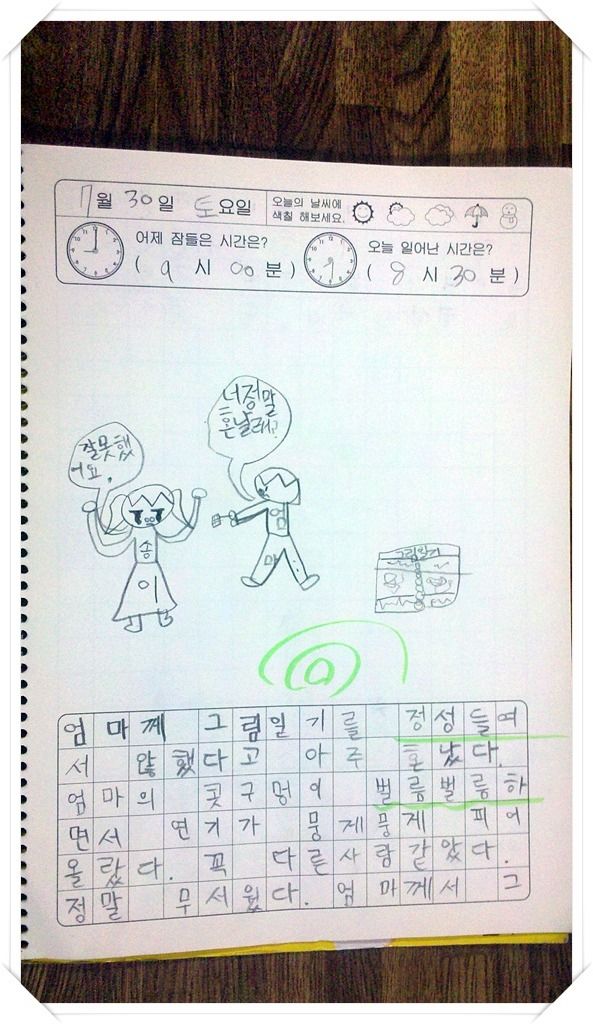 7월 30일 토요일
오늘의 날씨에
색칠 해보세요.
어제 잠들은 시간은?
( 9 시 00 분 )
오늘 일어난 시간은?
( 8 시 30 분 )
너정말
혼날래?
잘못했
어요.
엄
마
송
이
그림일기
엄마께 그림일기를 정성들여
서 않했다고 아주 혼났다.
엄마의 콧구멍이 벌름벌름하
면서 연기가 뭉게뭉게 피어
올랐다. 꼭 다른사람같았다.
정말 무서웠다. 엄마께서 그